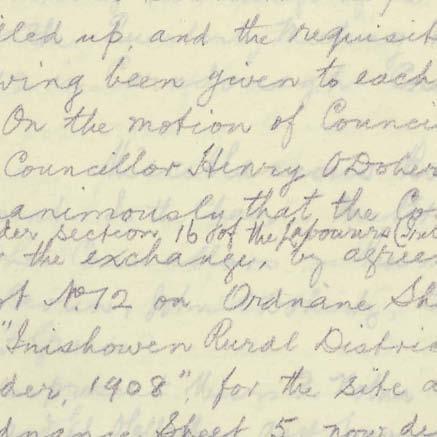 lled up, and the requisit
ving been given to each
On the motion of Counci
Councillor Henry O'Doher
nanimously that the Co
der section 16 of the Labourers (Irel
the exchange, by agree
ot No. 12 on Ordnane She
"Inishowen Rural Distric
der, 1908", for the site
dnance Sheet 5 now de